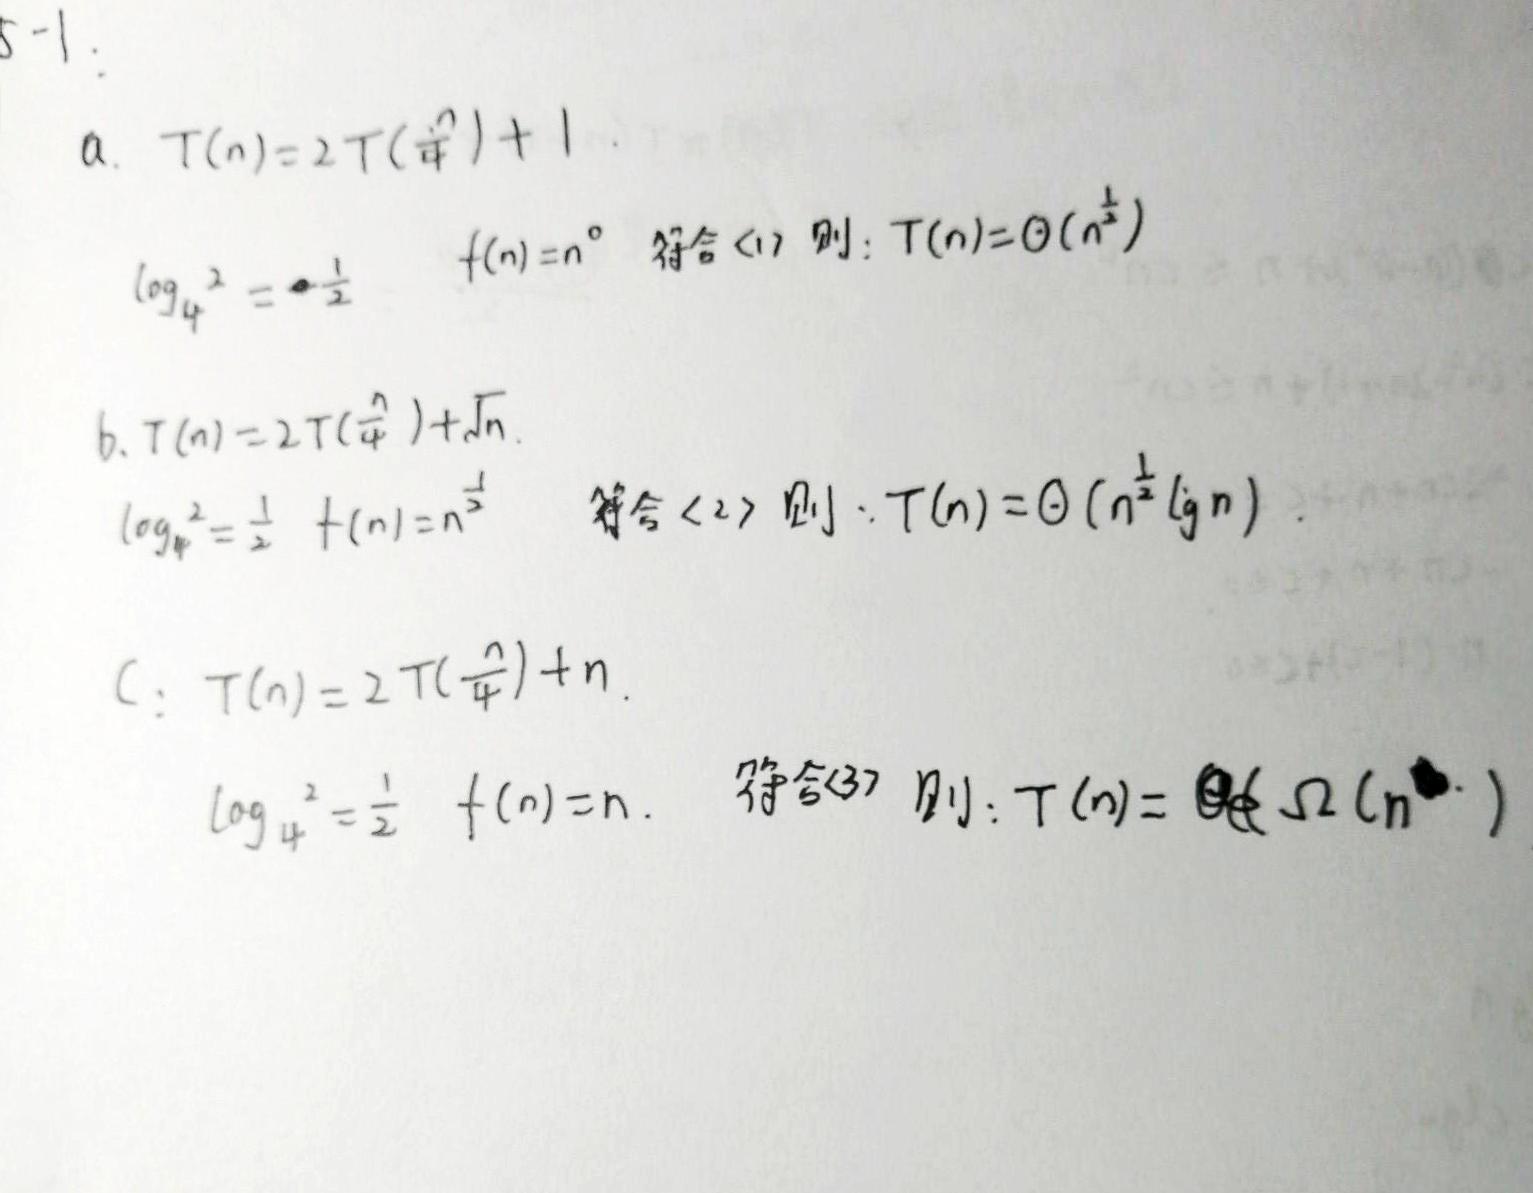 5-1:
a. T(n)=2T(n/4)+1.
log₄²=1/2 f(n)=n⁰ 符合<1> 则: T(n)=Θ(n^½)
b. T(n)=2T(n/4)+√n.
log₄²=1/2 f(n)=n^½ 符合<2> 则: T(n)=Θ(n^½ lg n).
C: T(n)=2T(n/4)+n.
log₄²=1/2 f(n)=n. 符合<3> 则: T(n)=Ω(n)